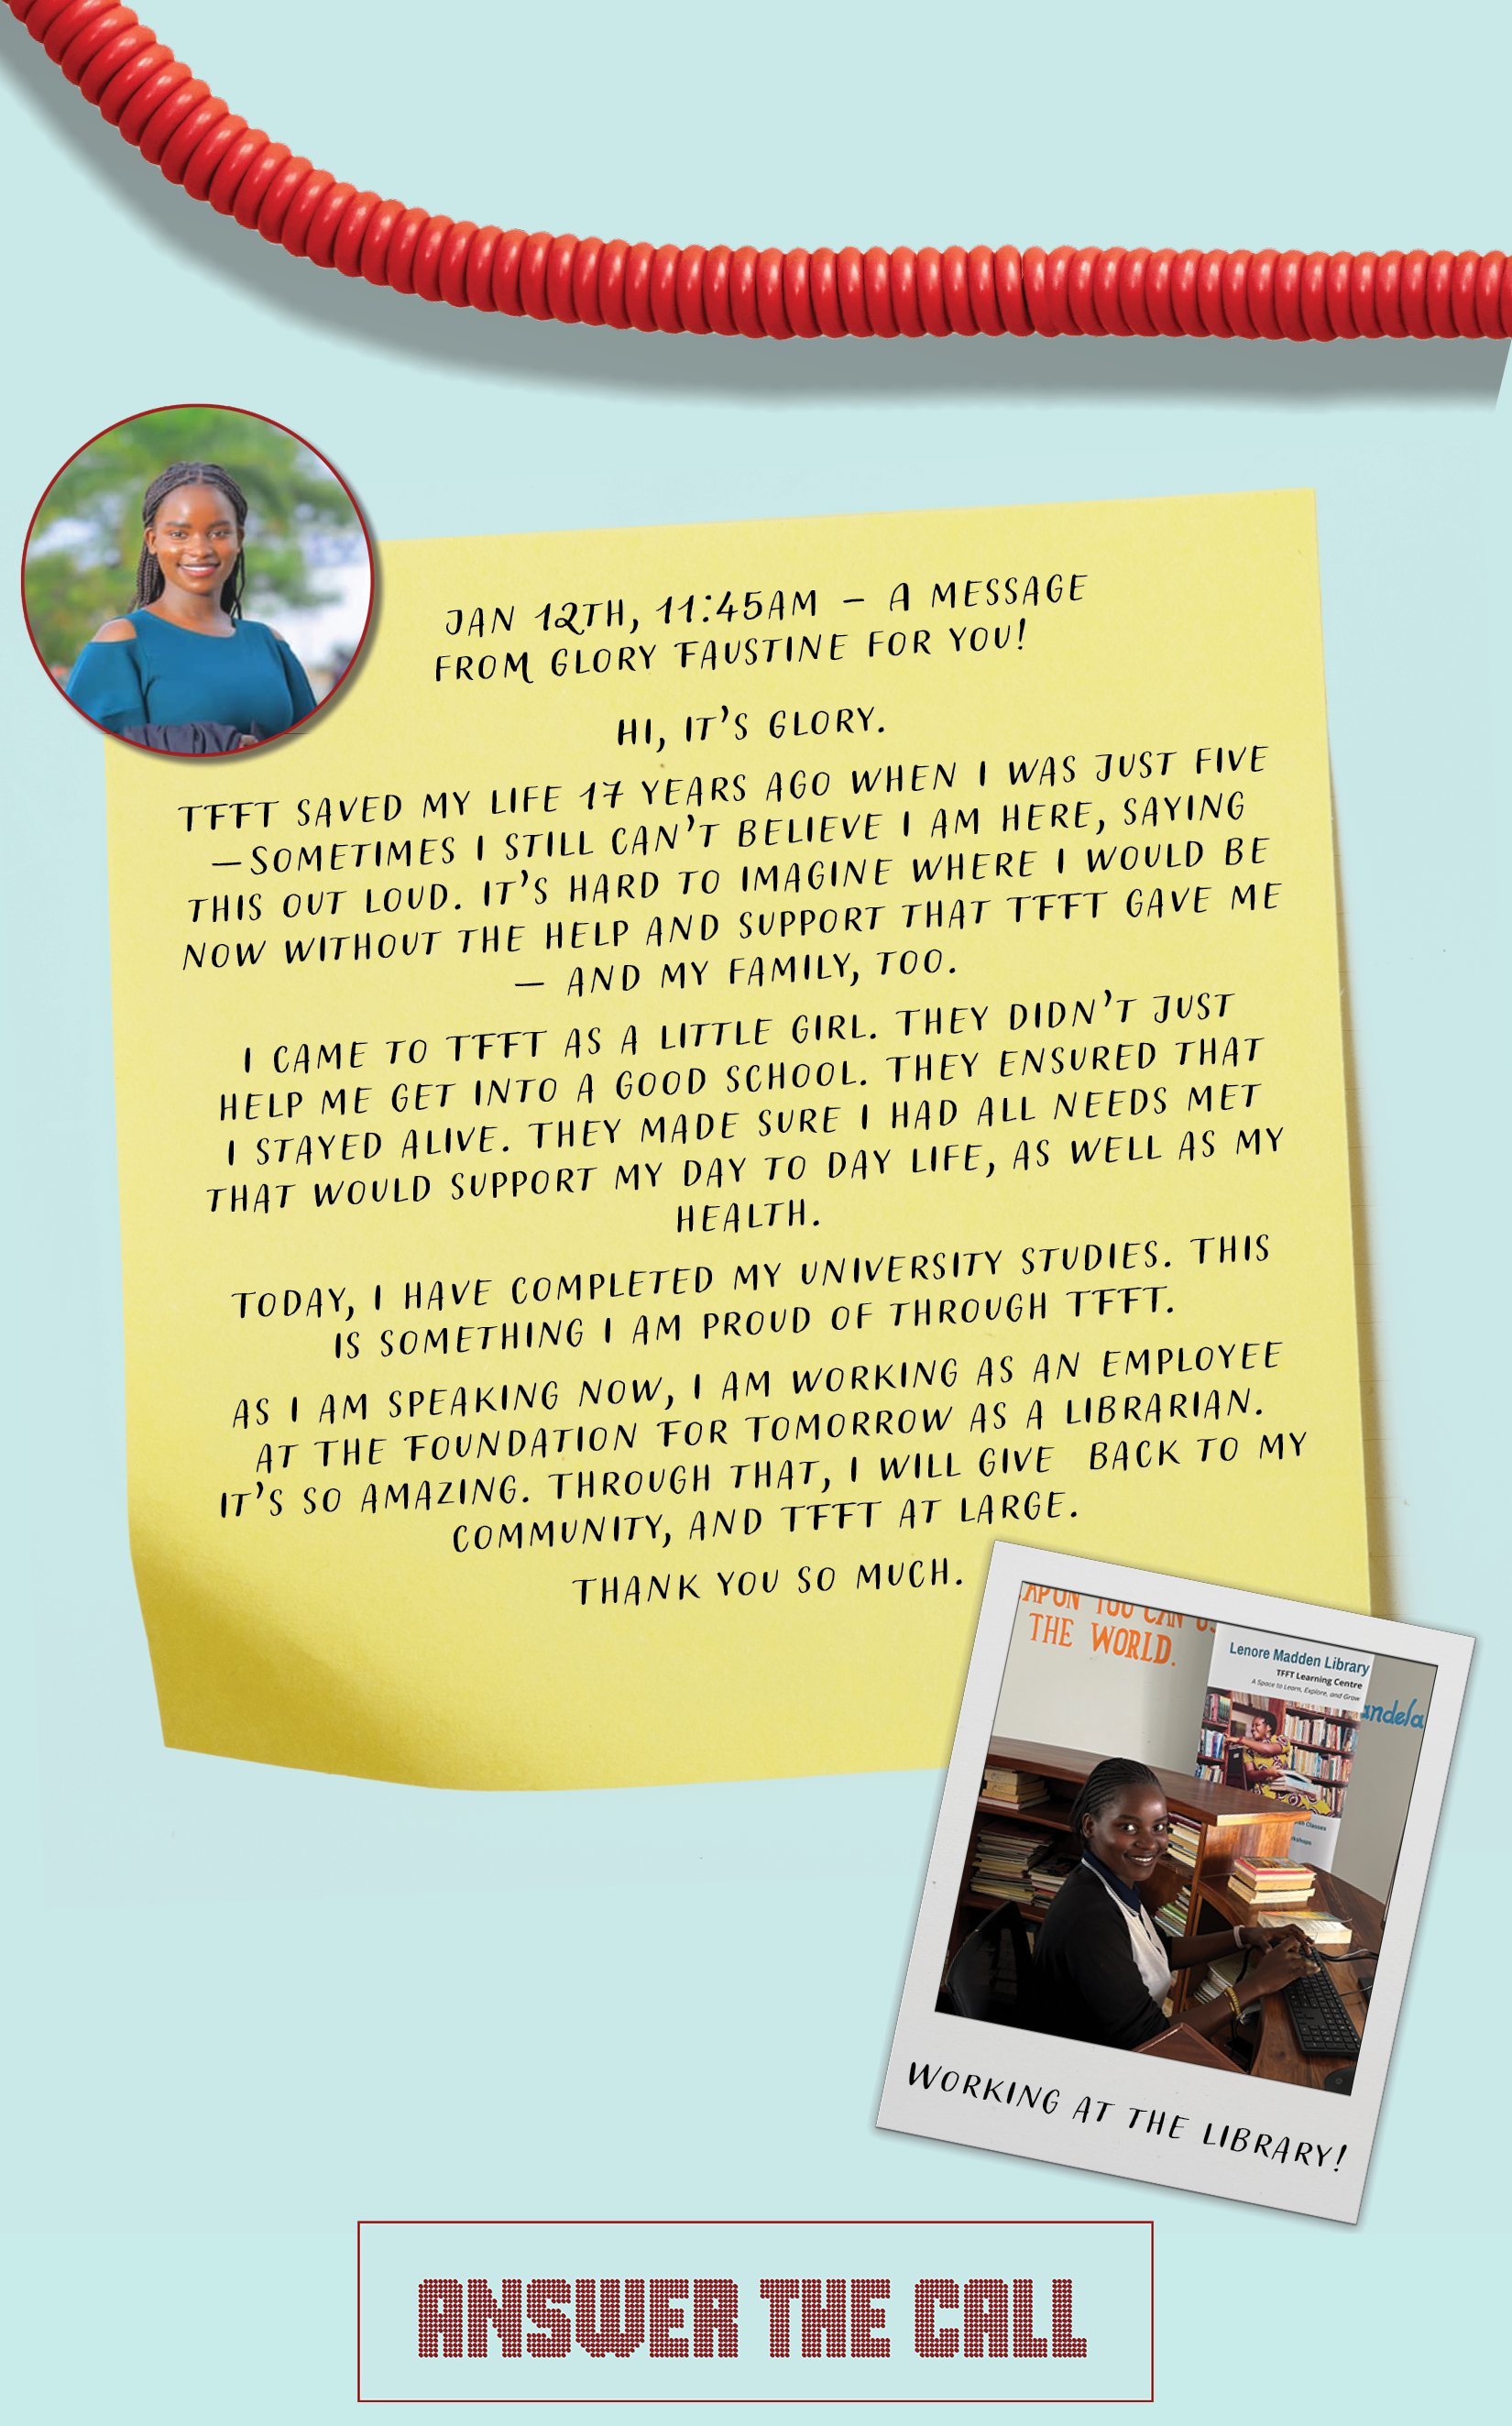 JAN 12TH, 11:45AM – A MESSAGE
FROM GLORY FAUSTINE FOR YOU!
HI, IT'S GLORY.
TFFT SAVED MY LIFE 17 YEARS AGO WHEN I WAS JUST FIVE
—SOMETIMES I STILL CAN'T BELIEVE I AM HERE, SAYING
THIS OUT LOUD. IT'S HARD TO IMAGINE WHERE I WOULD BE
NOW WITHOUT THE HELP AND SUPPORT THAT TFFT GAVE ME
— AND MY FAMILY, TOO.
I CAME TO TFFT AS A LITTLE GIRL. THEY DIDN'T JUST
HELP ME GET INTO A GOOD SCHOOL. THEY ENSURED THAT
I STAYED ALIVE. THEY MADE SURE I HAD ALL NEEDS MET
THAT WOULD SUPPORT MY DAY TO DAY LIFE, AS WELL AS MY
HEALTH.
TODAY, I HAVE COMPLETED MY UNIVERSITY STUDIES. THIS
IS SOMETHING I AM PROUD OF THROUGH TFFT.
AS I AM SPEAKING NOW, I AM WORKING AS AN EMPLOYEE
AT THE FOUNDATION FOR TOMORROW AS A LIBRARIAN.
IT'S SO AMAZING. THROUGH THAT, I WILL GIVE BACK TO MY
COMMUNITY, AND TFFT AT LARGE.
THANK YOU SO MUCH.
YOU CAN
THE WORLD.
Lenore Madden Library
TFFT Learning Centre
A Space to Learn, Explore, and Grow
andela
Classes
WORKING AT THE LIBRARY!
ANSWER THE CALL